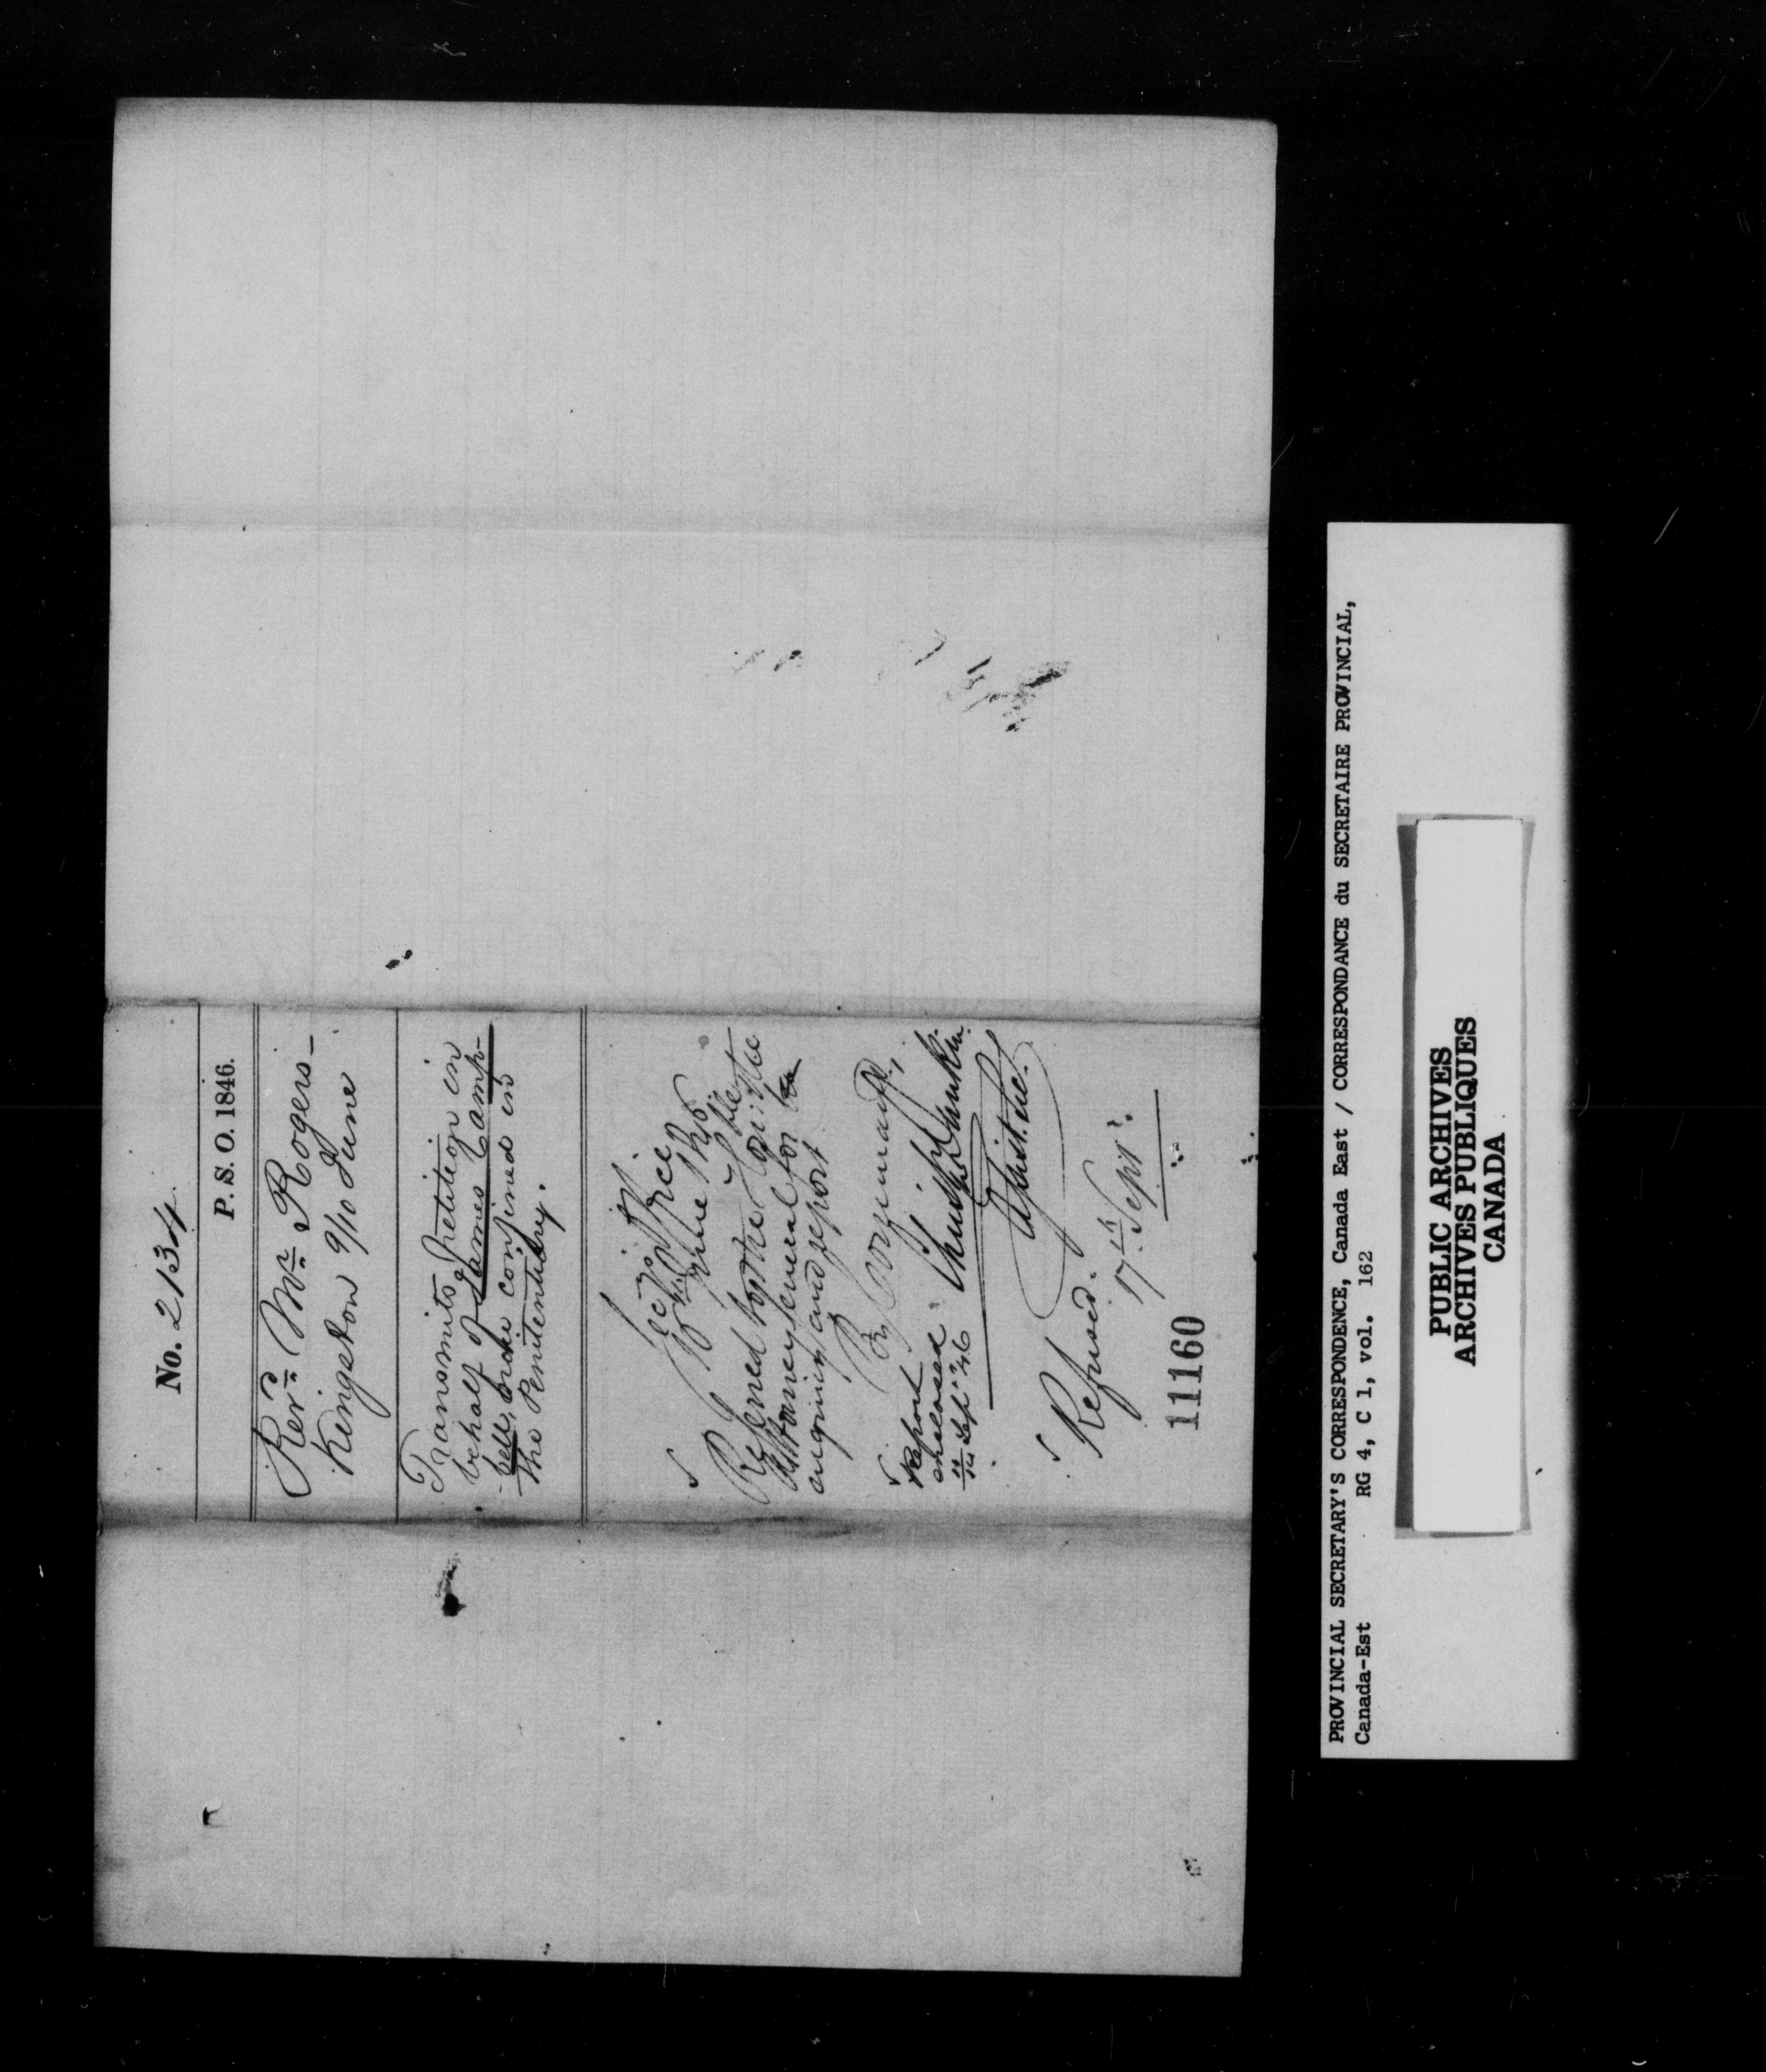 No. 2134
P. S. O. 1846.
Revd. Mr. Rogers–
Kingston 9/10 June
Transmits petition in
behalf of James Camp-
-bell, now confined in
the Penitentiary.
Secy's Office
June 1846
Referred to the Hble the
Attorney General for
enquiry and report
By Command,
Christopher Dunkin
Assist. Sec.
Report
enclosed
14 Sepr. 46
Refused.
17th Septr.
11160
PROVINCIAL SECRETARY'S CORRESPONDENCE, Canada East / CORRESPONDANCE du SECRETAIRE PROVINCIAL,
Canada-Est RG 4, C 1, vol. 162
PUBLIC ARCHIVES
ARCHIVES PUBLIQUES
CANADA